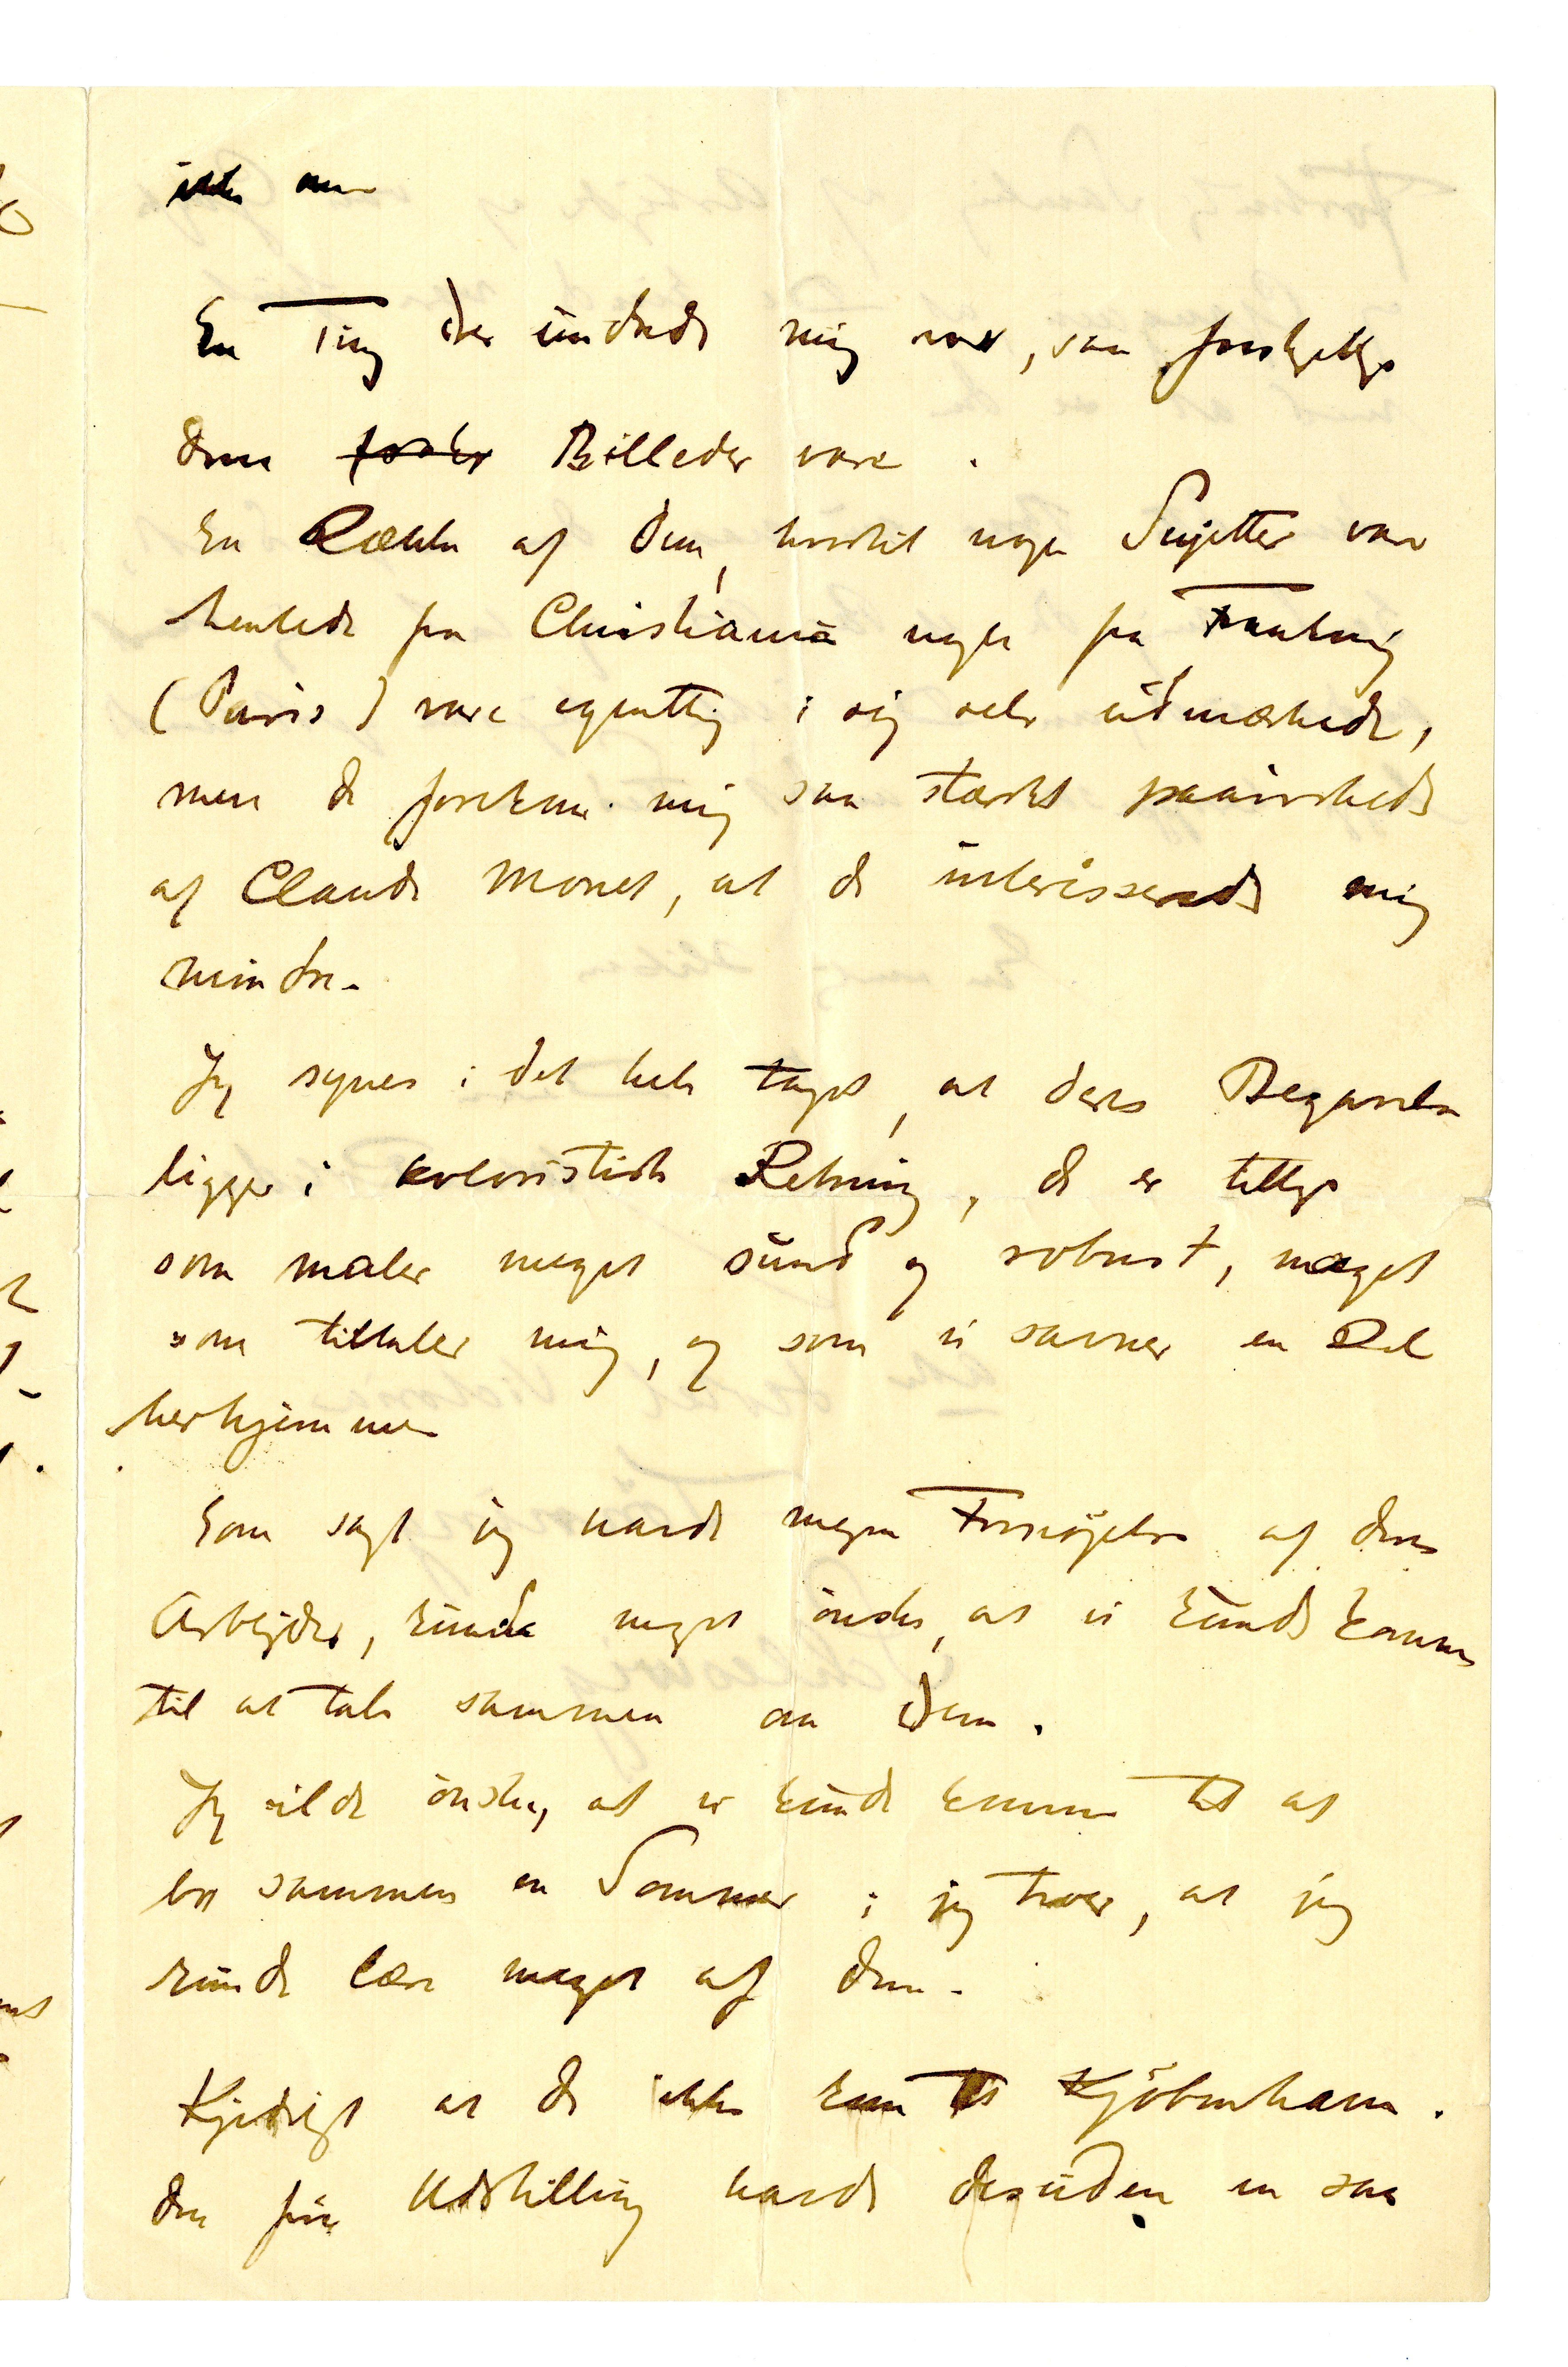 ikke om
En Ting der undrede mig var, saa forskjellige
deres Billeder vare.
En Række af dem, hvortil nogle Sujetter var
hentede fra Christiania nogle fra
(Paris) vare egentlig i sig selv udmærkede,
men de forekom mig saa stærkt paavirkede
af Claude Monet, at de interesserede mig
mindre.
Jeg synes i det hele taget, at deres Begavelse
ligger i koloristisk Retning, de er tillige
som maler meget sund og robust, noget
som tiltaler mig, og som vi savner en Del
herhjemme
Som sagt jeg havde megen Fornøjelse af deres
Arbejder, kunde meget ønske, at vi kunde komme
til at tale sammen om dem.
Jeg vilde ønske, at vi kunde komme til at
bo sammen en Sommer; jeg troer, at jeg
kunde lære meget af dem.
Kjedeligt at de ikke kom til Kjöbenhavn.
den frie Udstilling havde desuden en saa